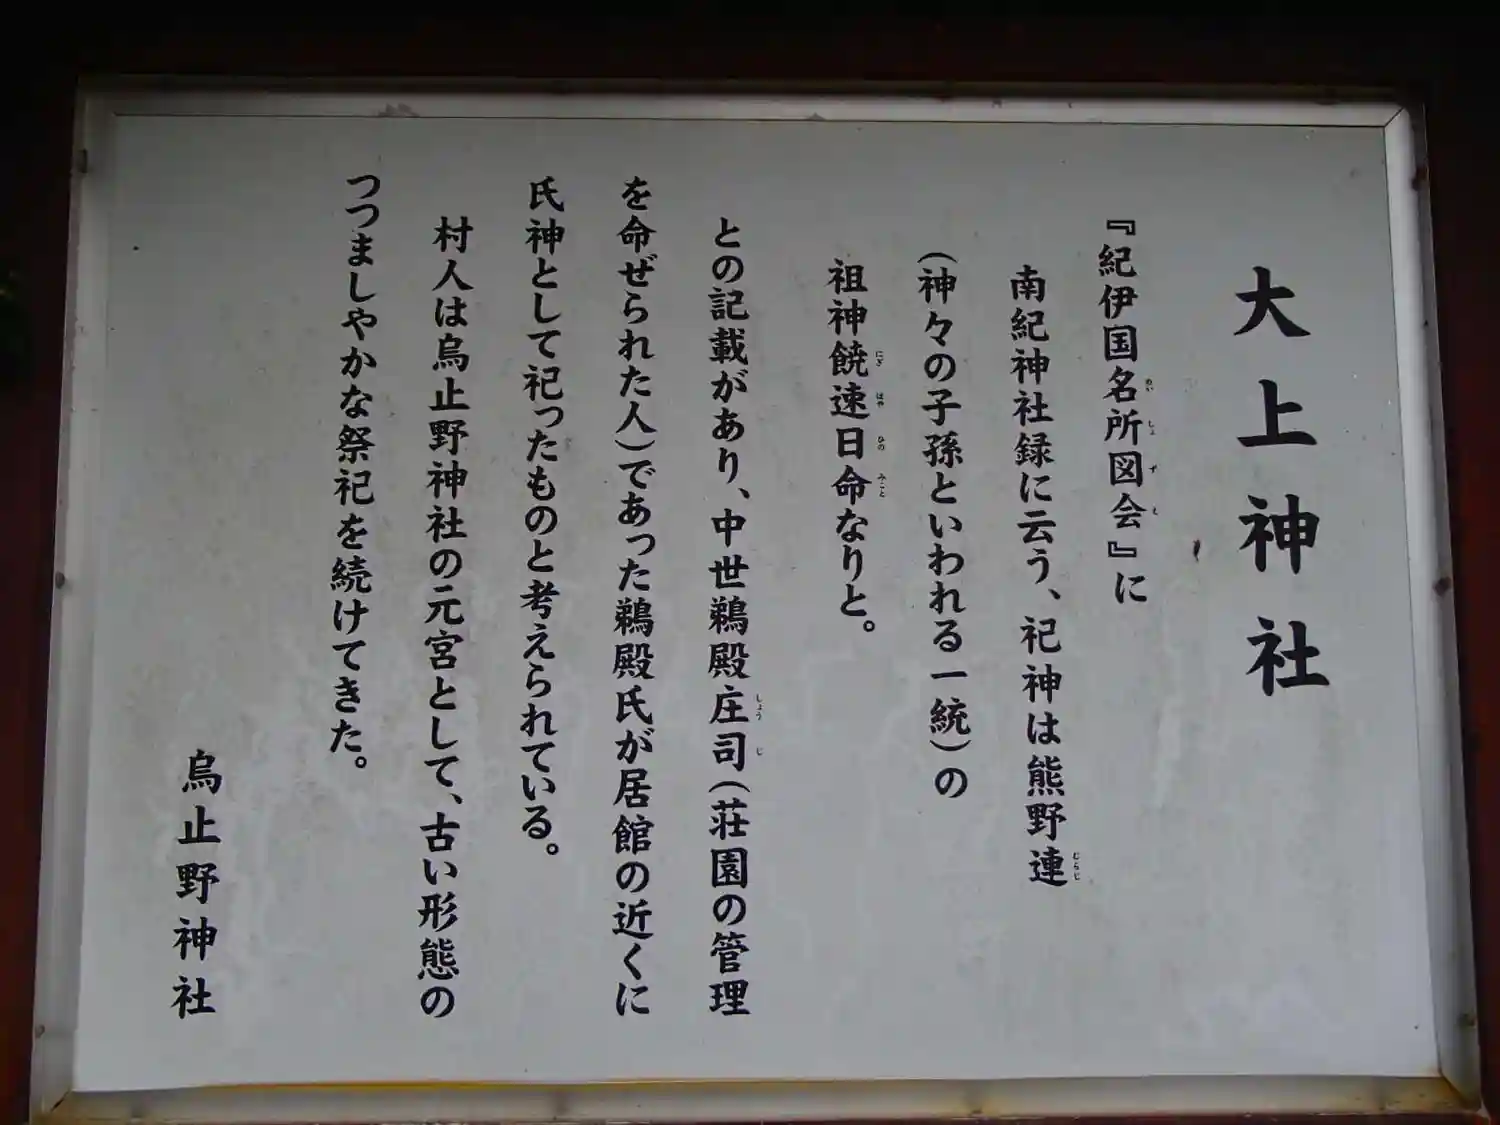 大上神社
『紀伊国名所図会』に
南紀神社録に云う、祀神は熊野連
(神々の子孫といわれる一統)の
祖神饒速日命なりと。
との記載があり、中世鵜殿庄司(荘園の管理
を命ぜられた人)であった鵜殿氏が居館の近くに
氏神として祀ったものと考えられている。
村人は烏止野神社の元宮として、古い形態の
つつましやかな祭祀を続けてきた。
烏止野神社